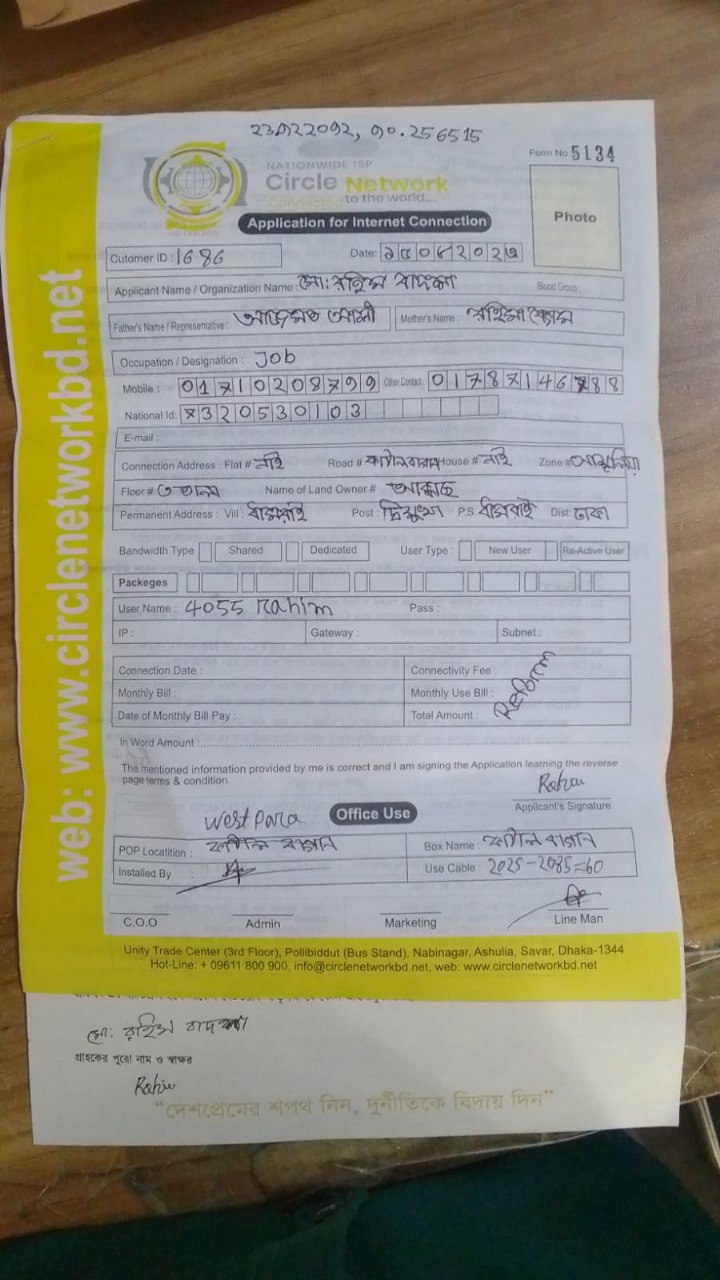 Form No 5134
NATIONWIDE ISP
Circle Network
Connected to the world...
Photo
Application for Internet Connection
Cutomer ID : 1686
Date:
Applicant Name / Organization Name : মো: রহিম বাদশা
Blood Group :
Father's Name / Representative : আজমত আলী
Mother's Name : রহিমা বেগম
Occupation / Designation : Job
Mobile : 01710208799 Other Contact: 01787146788
National Id: 7320530103
E-mail :
Connection Address : Flat # নাই Road # House # নাই Zone #
Floor # ৩ তালা Name of Land Owner # আক্কাছ
Permanent Address : Vill: ধামরাই Post : P.S ধামরাই Dist: ঢাকা
Bandwidth Type Shared Dedicated User Type : New User Re-Active User
Packeges
User Name : 4055 Rahim Pass :
IP : Gateway : Subnet :
Connection Date : Connectivity Fee :
Monthly Bill : Monthly Use Bill :
Date of Monthly Bill Pay : Total Amount :
Reform
In Word Amount
The mentioned information provided by me is correct and I am signing the Application learning the reverse
page terms & condition.
Applicant's Signature
West Para
Office Use
POP Locatition : কাঠাল বাগান Box Name : কাঠাল বাগান
Installed By : Use Cable : 2025-2085=60
C.O.O Admin Marketing Line Man
Unity Trade Center (3rd Floor), Pollibiddut (Bus Stand), Nabinagar, Ashulia, Savar, Dhaka-1344
Hot-Line: + 09611 800 900, info@circlenetworkbd.net, web: www.circlenetworkbd.net
web: www.circlenetworkbd.net
মো: রহিম বাদশা
গ্রাহকের পুরো নাম ও স্বাক্ষর
"দেশপ্রেমের শপথ নিন, দুর্নীতিকে বিদায় দিন"